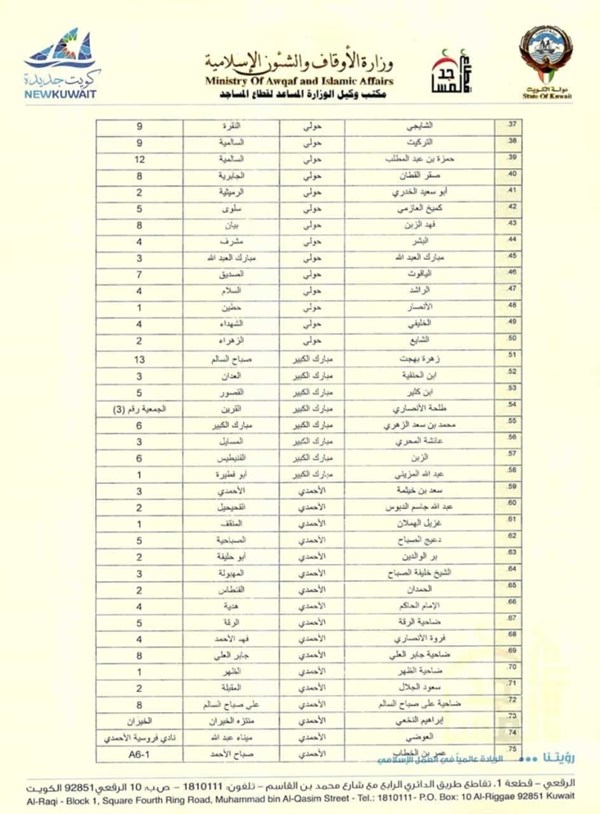 كويت جديدة
NEWKUWAIT
وزارة الأوقاف والشئون الإسلامية
Ministry Of Awqaf and Islamic Affairs
مكتب وكيل الوزارة المساعد لقطاع المساجد
قطاع المساجد
دولة الكويت
State Of Kuwait
37. الشايجي حولي النقرة 9
38. التركيت حولي السالمية 9
39. حمزة بن عبد المطلب حولي السالمية 12
40. صقر القطان حولي الجابرية 8
41. أبو سعيد الخدري حولي الرميثية 2
42. كميخ العازمي حولي سلوى 5
43. فهد الزبن حولي بيان 8
44. البشر حولي مشرف 4
45. مبارك العبد الله حولي مبارك العبد الله 3
46. الياقوت حولي الصديق 7
47. الراشد حولي السلام 4
48. الأنصار حولي حطين 1
49. الخليفي حولي الشهداء 4
50. الشايع حولي الزهراء 2
51. زهرة بهجت مبارك الكبير صباح السالم 13
52. ابن الحنفية مبارك الكبير العدان 3
53. ابن كثير مبارك الكبير القصور 5
54. طلحة الأنصاري مبارك الكبير القرين الجمعية رقم (3)
55. محمد بن سعد الزهري مبارك الكبير مبارك الكبير 6
56. عائشة المحري مبارك الكبير المسايل 3
57. الزبن مبارك الكبير الفنيطيس 6
58. عبد الله المزيني مبارك الكبير أبو فطيرة 1
59. سعد بن خيثمة الأحمدي الأحمدي 3
60. عبد الله جاسم الدبوس الأحمدي الفحيحيل 2
61. غزيل الهملان الأحمدي المنقف 1
62. دعيج الصباح الأحمدي الصباحية 5
63. بر الوالدين الأحمدي أبو حليفة 2
64. الشيخ خليفة الصباح الأحمدي المهبولة 3
65. الحمدان الأحمدي الفنطاس 2
66. الإمام الحاكم الأحمدي هدية 4
67. ضاحية الرقة الأحمدي الرقة 5
68. فروة الأنصاري الأحمدي فهد الأحمد 4
69. ضاحية جابر العلي الأحمدي جابر العلي 8
70. ضاحية الظهر الأحمدي الظهر 1
71. سعود الجلال الأحمدي العقيلة 2
72. ضاحية علي صباح السالم الأحمدي علي صباح السالم 8
73. إبراهيم النخعي الأحمدي منتزه الخيران الخيران
74. العوضي الأحمدي ميناء عبد الله نادي فروسية الأحمدي
75. عمر بن الخطاب الأحمدي صباح الأحمد A6-1
رؤيتنا ••• الريادة عالمياً في العمل الإسلامي
الرقعي – قطعة 1. تقاطع طريق الدائري الرابع مع شارع محمد بن القاسم – تلفون: 1810111 – ص.ب: 10 الرقعي 92851 الكويت
Al-Raqi - Block 1, Square Fourth Ring Road, Muhammad bin Al-Qasim Street - Tel.: 1810111- P.O. Box: 10 Al-Riggae 92851 Kuwait